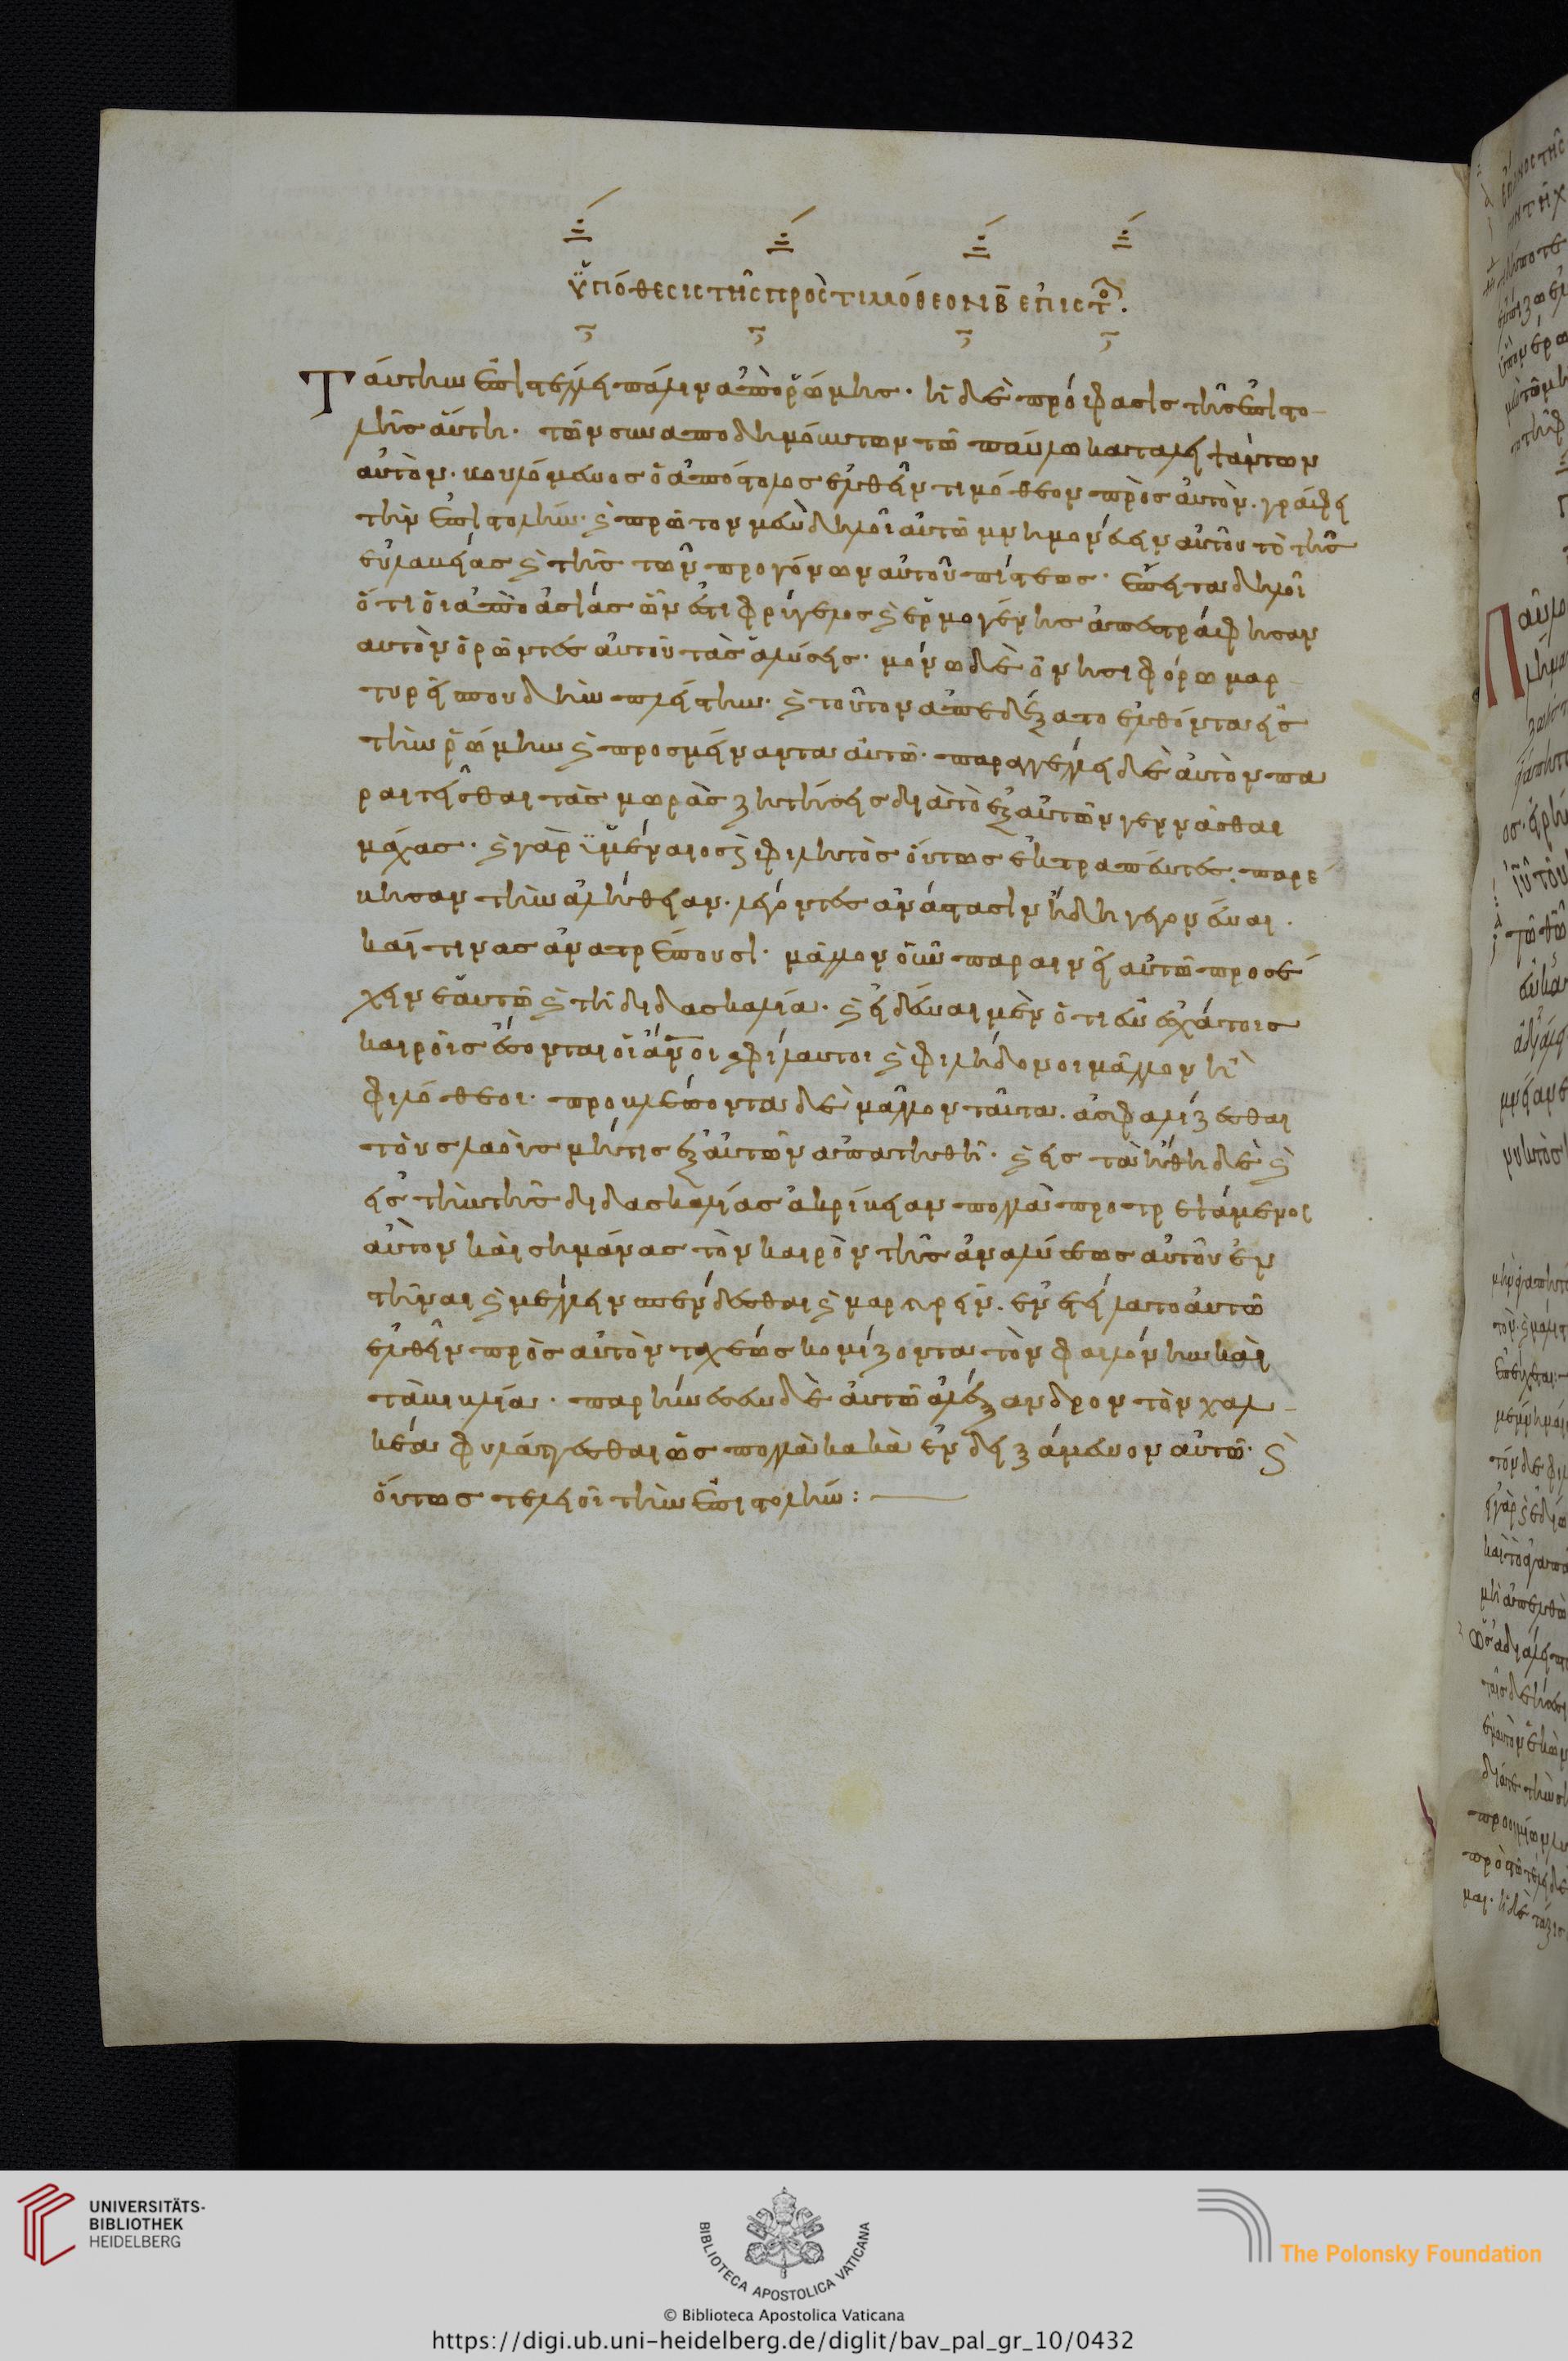 ὑπόθεσις τῆς πρὸς τιμόθεον β ἐπιστο.
Ταύτην ἐπιστέλλει πάλιν ἀπὸ ῥώμης· ἡ δὲ πρόφασις τῆς ἐπιστο-
λῆς αὕτη· τῶν συναποδημούντων τῶ παύλω καταλειψάντων
αὐτὸν· βουλόμενος ὁ ἀπόστολος ἐλθεῖν τιμόθεον πρὸς αὐτὸν· γράφει
τὴν ἐπιστολήν· ϗ πρῶτον μὲν δηλοῖ αὐτῶ μνημονεύειν αὐτοῦ τὸ τῆς
εὐλαβείας ϗ τῆς τῶν προγόνων αὐτοῦ πίστεως· ἔπειτα δηλοῖ
ὅτι οἱ ἀπὸ ἀσίας ὧν ἐστι φρίγελος ϗ ἑρμογένης ἀπεστράφησαν
αὐτὸν ὁρῶντες αὐτοῦ τὰς ἁλύσεις· μόνω δὲ ὀνησιφόρω μαρ-
τυρεῖ σπουδὴν πλείστην· ϗ τοῦτον ἀπεδέξατο ἐλθόντα εἰς
τὴν ῥώμην ϗ προσμείναντα αὐτῶ· παραγγέλλει δὲ αὐτὸν πα
ραιτεῖσθαι τὰς μωρὰς ζητήσεις διὰ τὸ ἐξ αὐτῶν γεννᾶσθαι
μάχας· ϗ γὰρ ὑμέναιος ϗ φιλητὸς οὕτως ἐκτραπέντες· παρέ
βησαν τὴν ἀλήθειαν· λέγοντες ἀνάστασιν ἤδη γεγονέναι·
καί τινας ἀνατρέπουσι· μᾶλλον οὖν παραινεῖ αὐτῶ προσέ
χειν ἑαυτῶ ϗ τῆ διδασκαλία· ϗ εἰδέναι μὲν ὅτι ἐν ἐσχάτοις
καιροῖς ἔσονται οἱ ἄνοι φίλαυτοι ϗ φιλήδονοι μᾶλλον ἢ
φιλόθεοι· προβλέποντα δὲ μᾶλλον ταῦτα· ἀσφαλίζεσθαι
τοὺς λαοὺς μήτις ἐξ αὐτῶν ἀπατηθῆ· ϗ εἰς τὰ ἤθη δὲ ϗ
εἰς τὴν τῆς διδασκαλίας ἀκρίβειαν πολλὰ προτρεψάμενος
αὐτὸν καὶ σημάνας τὸν καιρὸν τῆς ἀναλύσεως αὐτοῦ ἐν
στῆναι ϗ μέλλειν σπένδεσθαι ϗ μαρτυρεῖν· ἐνετείλατο αὐτῶ
ἐλθεῖν πρὸς αὐτὸν ταχέως κομίζοντα τὸν φαιλόνην καὶ
τὰ βιβλία· παρήνεσεν δὲ αὐτῶ ἀλέξανδρον τὸν χαλ-
κέα φυλάττεσθαι ὡς πολλὰ κακὰ ἐνδειξάμενον αὐτῶ· ϗ
οὕτως τελειοῖ τὴν ἐπιστολήν:
UNIVERSITÄTS-
BIBLIOTHEK
HEIDELBERG
BIBLIOTECA APOSTOLICA VATICANA
The Polonsky Foundation
© Biblioteca Apostolica Vaticana
https://digi.ub.uni-heidelberg.de/diglit/bav_pal_gr_10/0432